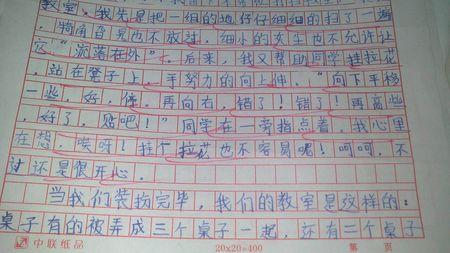 教室。我先是把一组的地仔仔细细的扫了一遍
犄角旮旯也不放过，细小的灰尘也不允许让
它“流落在外”。后来，我又帮助同学挂拉花，
站在凳子上，手努力的向上伸。“向下平移
一些，好，停，再向右，错了！错了！再高些
，好了，贴吧！”同学在一旁指点着，我心里
在想，唉呀！挂个拉花也不容易呢！呵呵，不
过还是很开心。
当我们装扮完毕，我们的教室是这样的：
桌子有的被弄成三个桌子一起，还有二个桌子
中联纸品 20×20=400 第 页